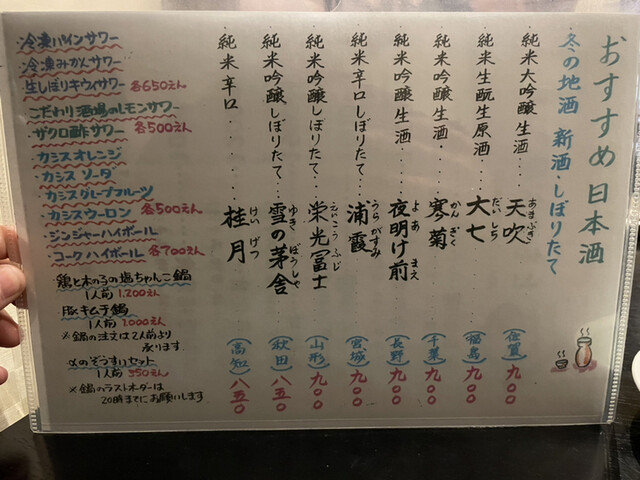 おすすめ日本酒
冬の地酒 新酒 しぼりたて
純米大吟醸生酒・・・天吹 あまぶき (佐賀) 九〇〇
純米生酛生原酒・・・大七 だいしち (福島) 九〇〇
純米吟醸生酒・・・寒菊 かんぎく (千葉) 九〇〇
純米吟醸生酒・・・夜明け前 よあまえ (長野) 九〇〇
純米辛口しぼりたて・・・浦霞 うらがすみ (宮城) 九〇〇
純米吟醸しぼりたて・・・栄光冨士 えいこうふじ (山形) 九〇〇
純米吟醸しぼりたて・・・雪の茅舎 ゆきぼうしゃ (秋田) 八五〇
純米辛口・・・桂月 けいげつ (高知) 八五〇
・冷凍パインサワー
・冷凍みかんサワー
・生しぼりキウイサワー 各650えん
・こだわり酒場のレモンサワー
・ザクロ酢サワー 各500えん
・カシスオレンジ
・カシスソーダ
・カシスグレープフルーツ
・カシスウーロン 各500えん
・ジンジャーハイボール
・コークハイボール 各700えん
・鶏ときの子の塩ちゃんこ鍋
1人前 1.200えん
・豚キムチ鍋
1人前 1.000えん
※鍋の注文は2人前より
承ります。
〆のぞうすいセット
1人前 350えん
※鍋のラストオーダーは
20時までにお願いします